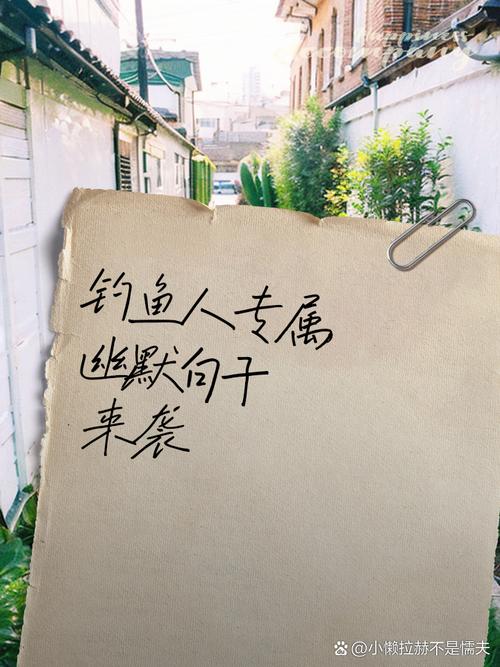 Happiness
accompany
钓鱼人专属
幽默句子
来袭
@小懒拉赫不是懦夫